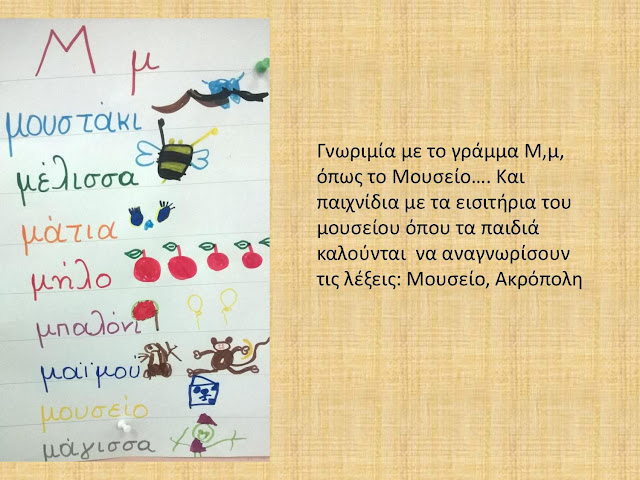 Μ μ
μουστάκι
μέλισσα
μάτια
μήλο
μπαλόνι
μαϊμού
μουσείο
μάγισσα
Γνωριμία με το γράμμα Μ,μ,
όπως το Μουσείο.... Και
παιχνίδια με τα εισιτήρια του
μουσείου όπου τα παιδιά
καλούνται να αναγνωρίσουν
τις λέξεις: Μουσείο, Ακρόπολη